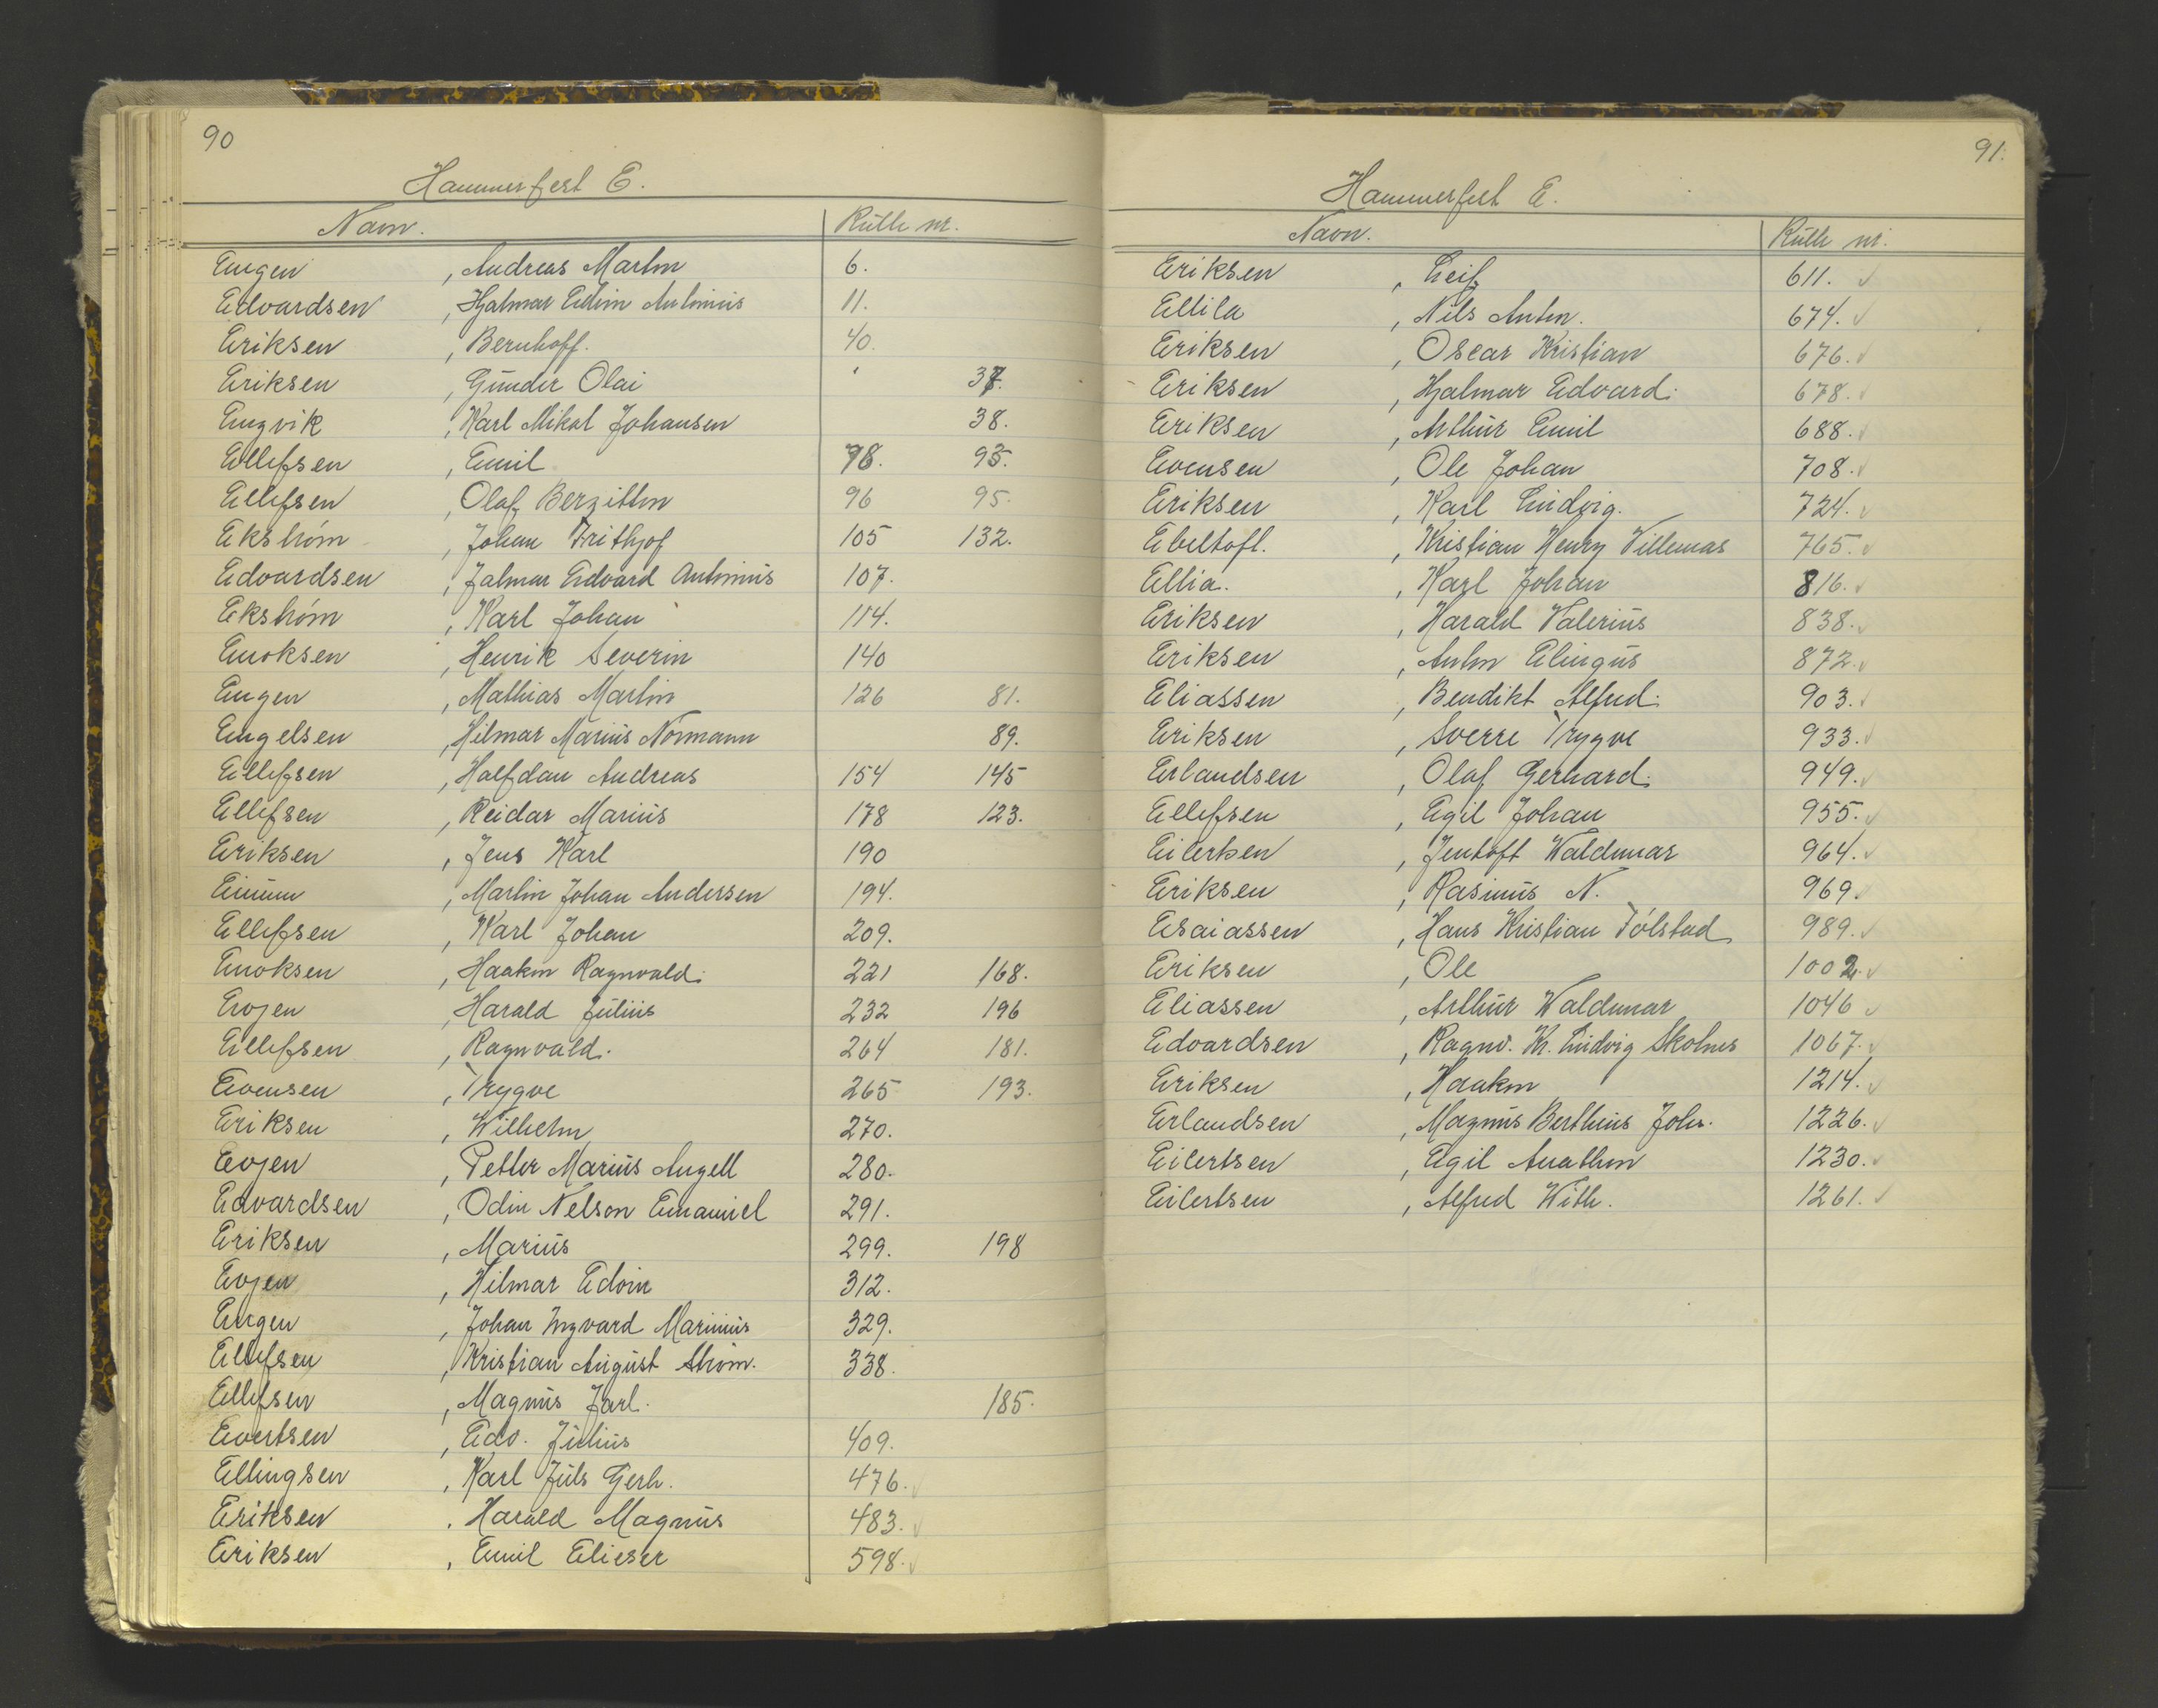 90
Hammerfest E.
Navn. Rulle nr.
Engen, Andreas Martin 6.
Edvardsen, Hjalmar Edvin Antonius 11.
Eriksen, Bernhoff. 40.
Eriksen, Gunder Olai 37.
Engvik, Karl Mikal Johansen 38.
Ellefsen, Emil 98. 93.
Ellefsen, Olaf Bergiton 96 95.
Ekstrøm, Johan Frithjof 105 132.
Edvardsen, Jalmar Edvard Antonius 107.
Ekstrøm, Karl Johan 114.
Enoksen, Henrik Severin 140
Engen, Mathias Martin 126 81.
Engelsen, Hilmar Marius Normann 89.
Ellefsen, Halfdan Andreas 154 145
Ellefsen, Reidar Marius 178 123.
Eriksen, Jens Karl 190
, Martin Johan Andersen 194.
Ellefsen, Karl Johan 209.
Enoksen, Haakon Ragnvald. 221 168.
Evjen, Harald Julius 232 196
Ellefsen, Ragnvald. 264 181.
Evensen, Trygve 265 193.
Eriksen, Wilhelm 270.
Evjen, Petter Marius Angell 280.
Edvardsen, Odin Nelson Emanuel 291.
Eriksen, Marius 299. 198
Evjen, Hilmar Edvin 312.
Engen, Johan Ingvard Marinius 329.
Ellefsen, Kristian August Strøm. 338.
Ellefsen, Magnus Jarl. 185.
Evertsen, Edv. Julius 409.
Ellingsen, Karl Juls Gerh. 476.
Eriksen, Harald Magnus 483.
Eriksen, Emil Elieser 598.
91.
Hammerfest E.
Navn. Rulle nr.
Eriksen, Leif 611.
Ellila, Nils Anton. 674.
Eriksen, Oscar Kristian 676.
Eriksen, Hjalmar Edvard. 678.
Eriksen, Arthur Emil 688.
Evensen, Ole Johan 708.
Eriksen, Karl Ludvig. 724.
Ebeltoft., Kristian Henry Villemas 765.
Ellia., Karl Johan 816.
Eriksen, Harald Valerius 838.
Eriksen, Anton Elingus 872.
Eliassen, Bendikt Alfred. 903.
Eriksen, Sverre Trygve 933.
Erlandsen, Olaf Gerhard. 949.
Ellefsen, Egil Johan 955.
Eilertsen, Jentoft Waldemar 964.
Eriksen, Rasmus N. 969.
Esaiassen, Hans Kristian Tølstad 989.
Eriksen, Ole 1002.
Eliassen, Arthur Waldemar 1046
Edvardsen, Ragnv. Kr. Ludvig Skolnes 1067.
Eriksen, Haakon 1214.
Erlandsen, Magnus Berthius Johs. 1226.
Eilertsen, Egil Anathon 1230.
Eilertsen, Alfred With. 1261.